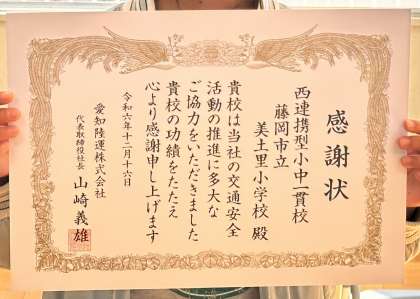 感謝状
西連携型小中一貫校
藤岡市立
美土里小学校 殿
貴校は当社の交通安全
活動の推進に多大な
ご協力をいただきました
貴校の功績をたたえ
心より感謝申し上げます
令和六年十二月十六日
愛知陸運株式会社
代表取締役社長 山崎義雄